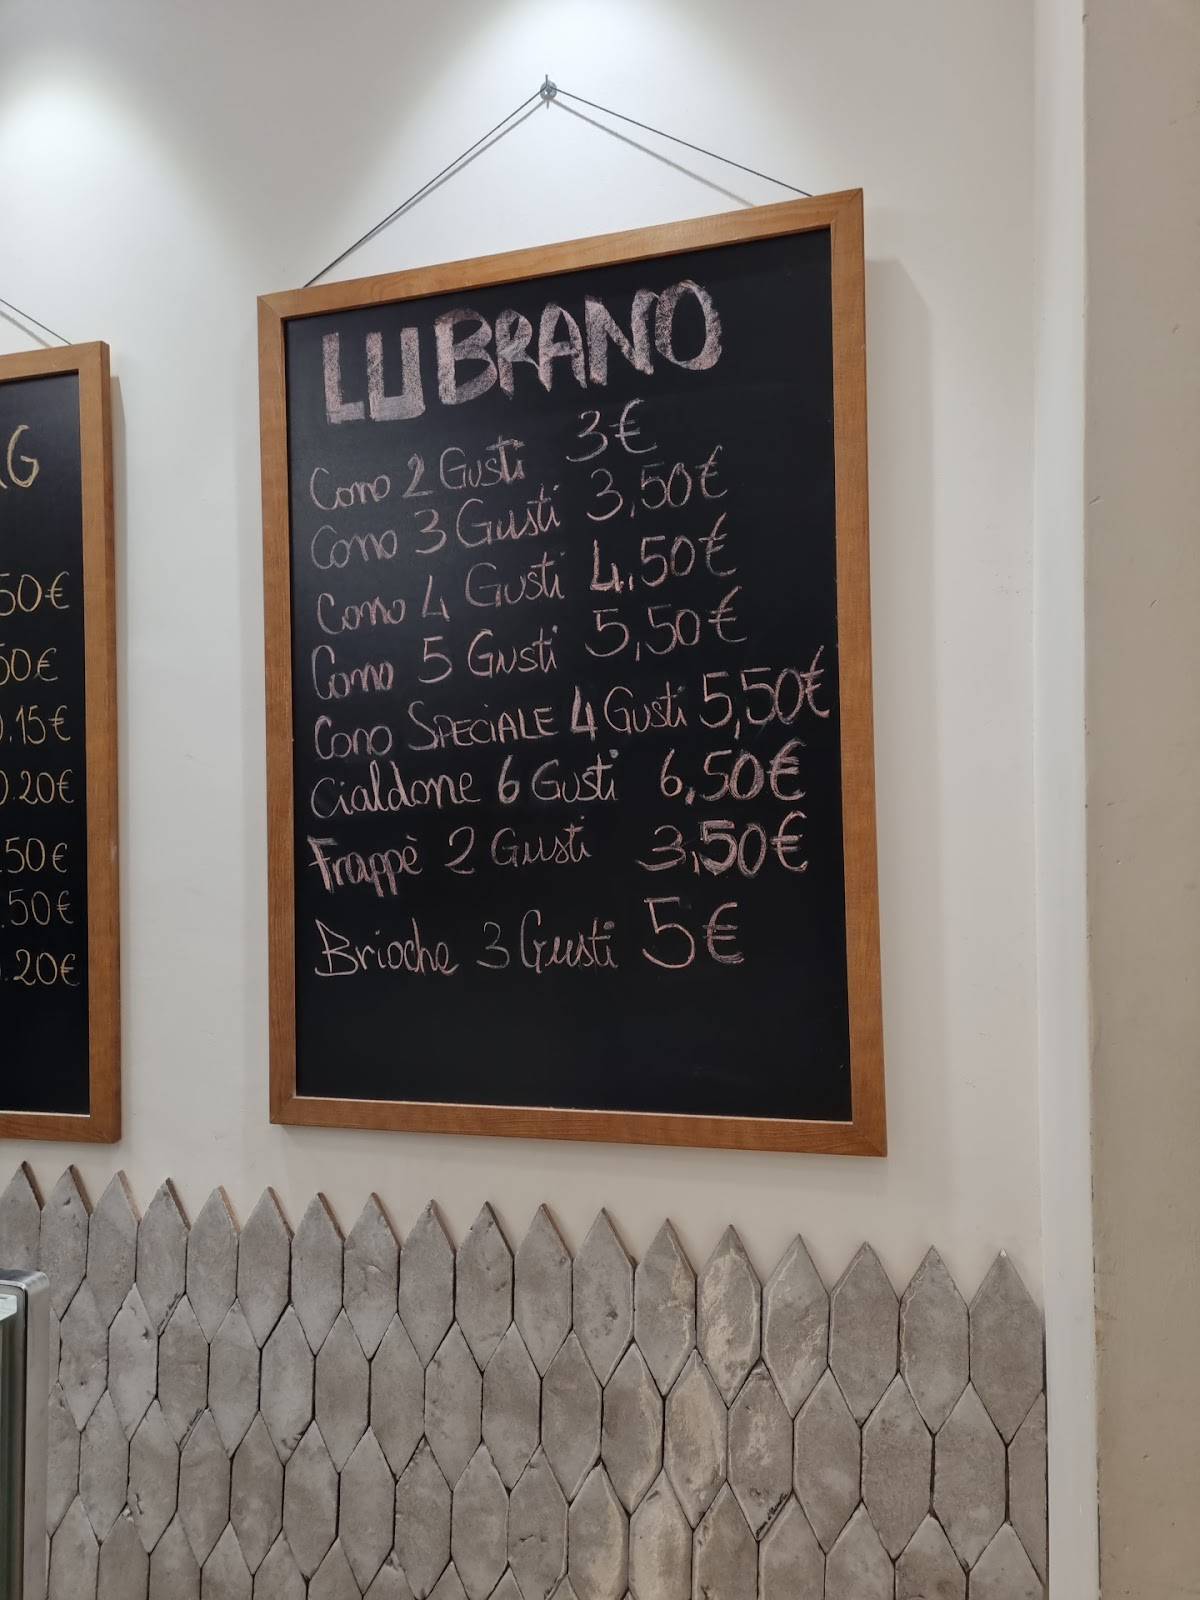 LUBRANO
Cono 2 Gusti 3€
Cono 3 Gusti 3,50€
Cono 4 Gusti 4,50€
Cono 5 Gusti 5,50€
Cono SPECIALE 4 Gusti 5,50€
Cialdone 6 Gusti 6,50€
Frappè 2 Gusti 3,50€
Brioche 3 Gusti 5€
G
50€
50€
.15€
.20€
50€
.50€
.20€